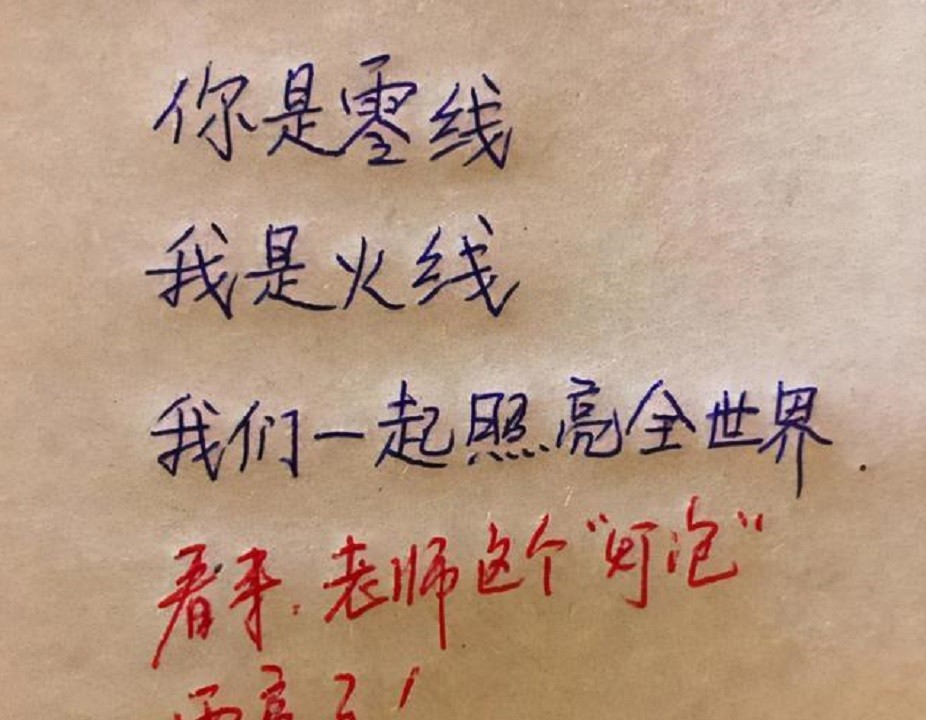 你是零线
我是火线
我们一起照亮全世界.
看来.老师这个“灯泡”
要亮了！